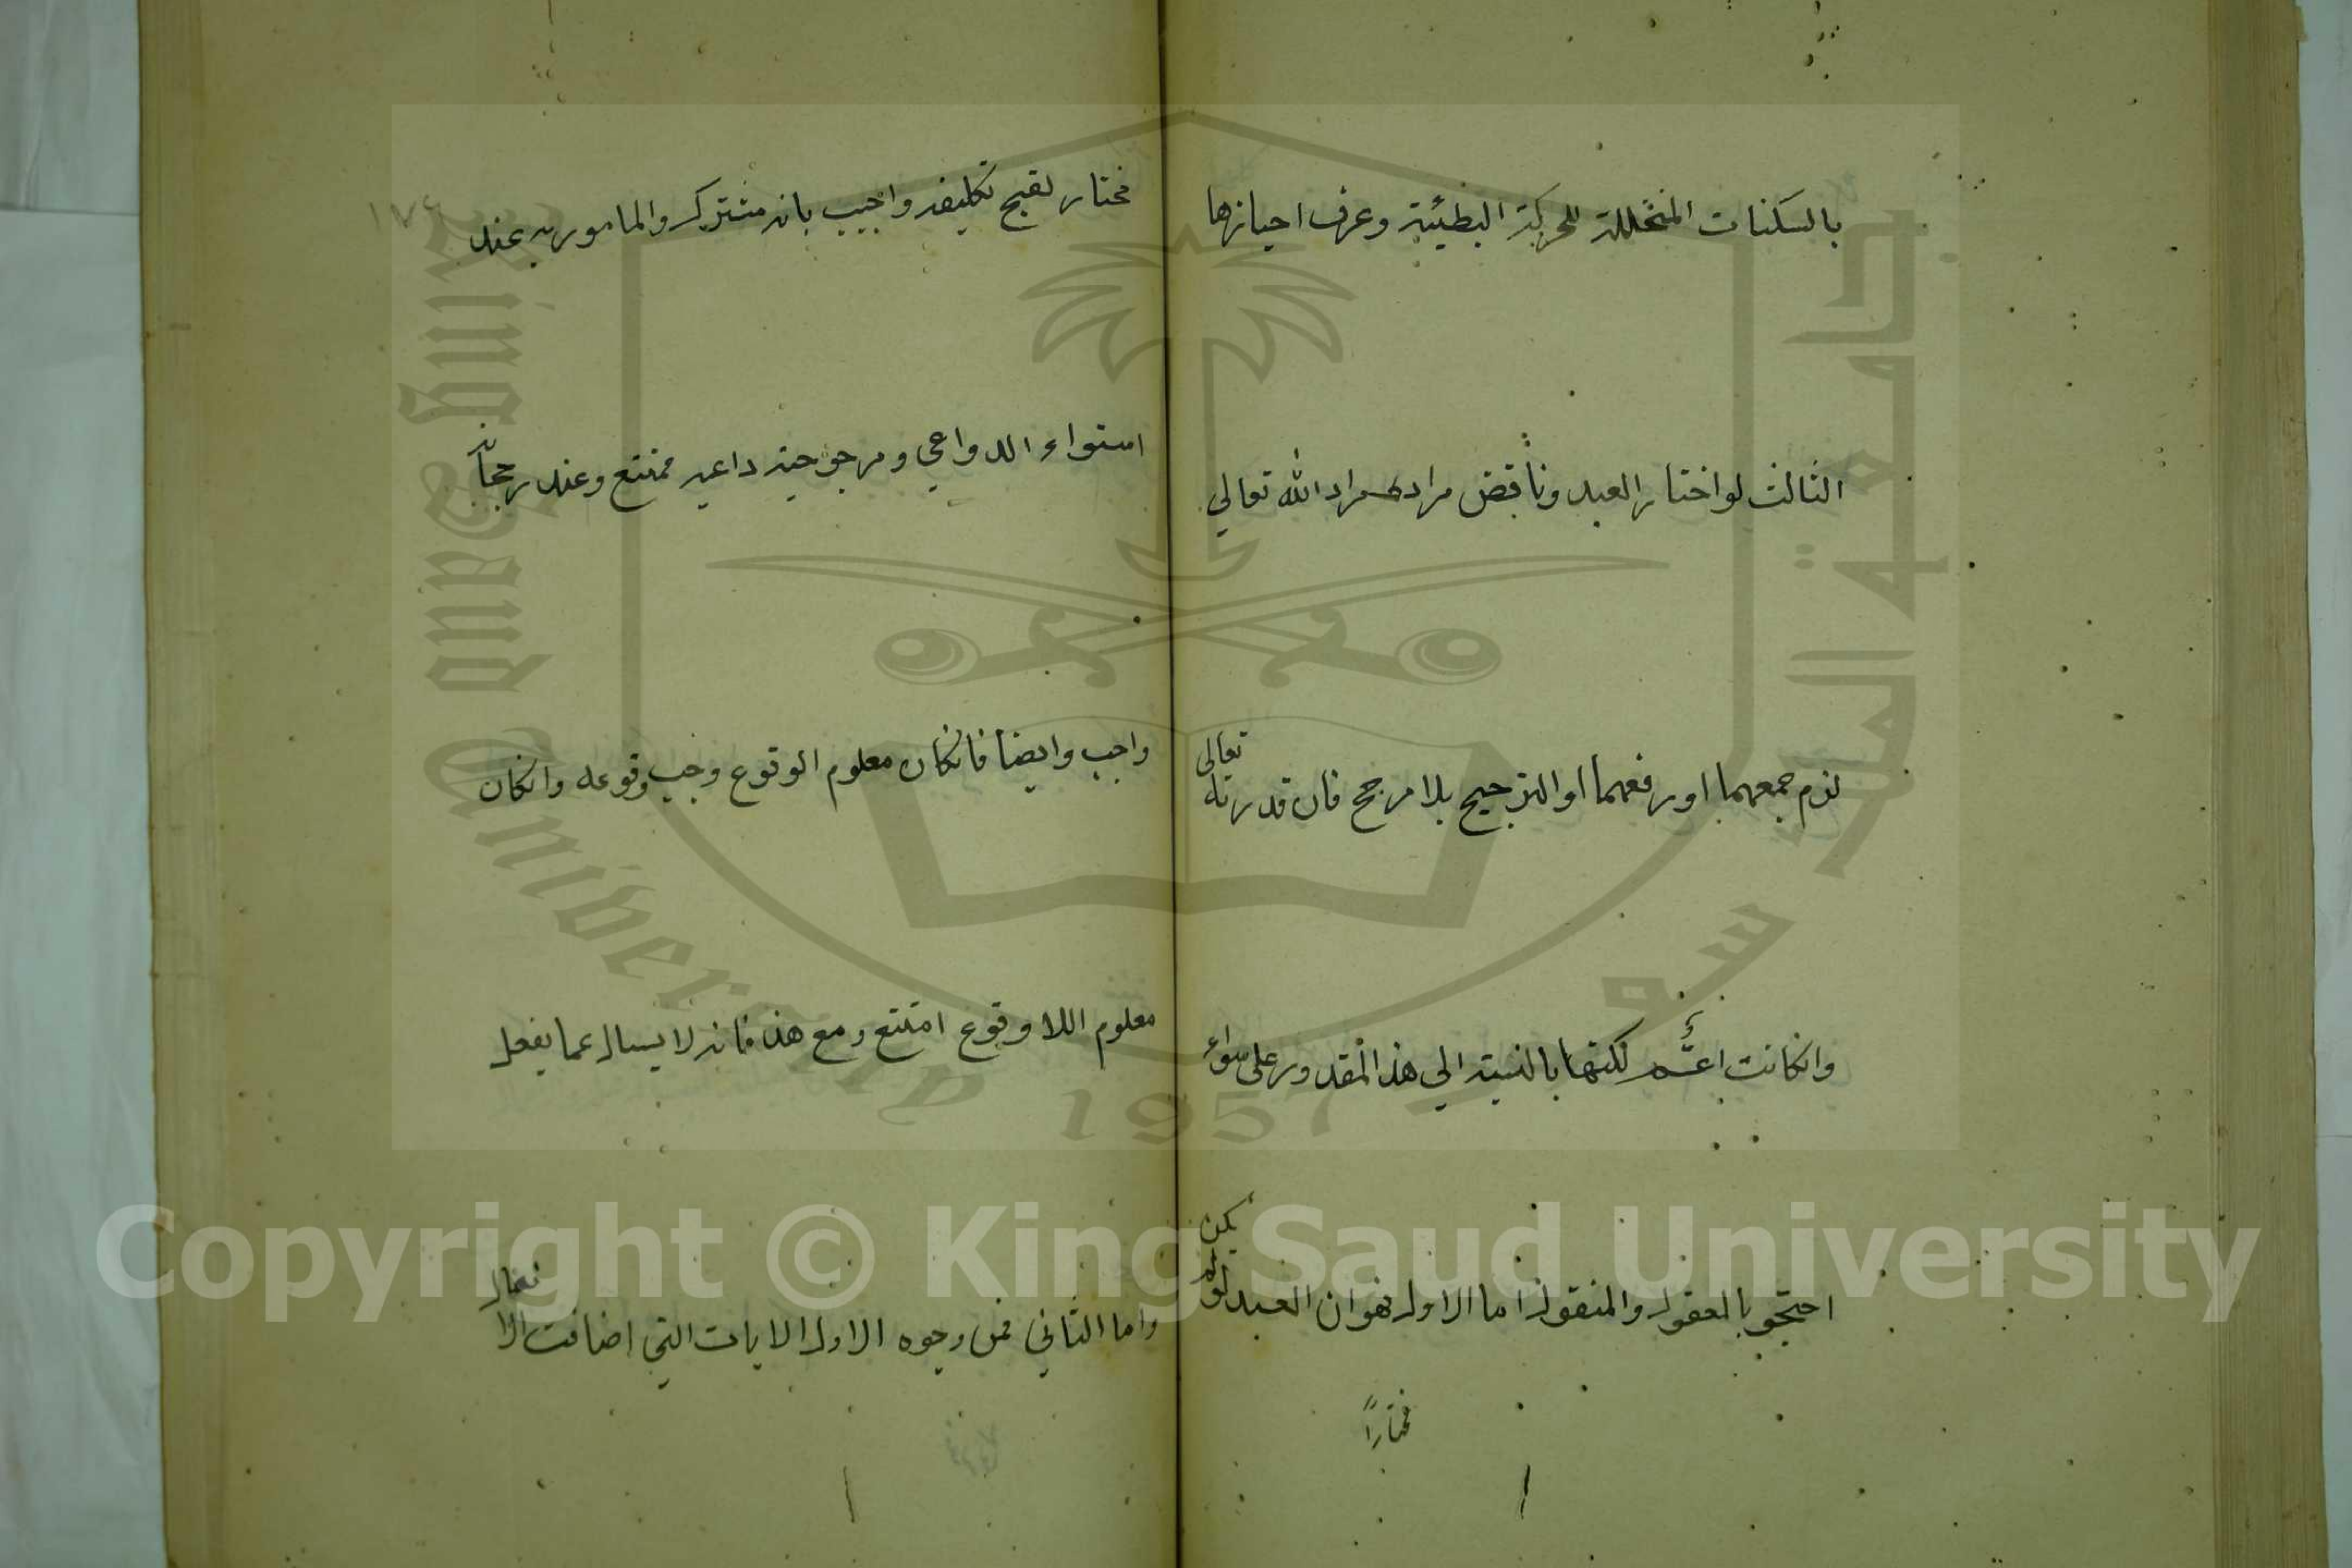 بالسكنات المتخللة للحركة البطيئة وعرف احيازها
الثالث لو اختار العبد وناقض مراده مراد الله تعالي
لزم جمعهما او رفعهما او الترجيح بلا مرجح فان قدرته تعالى
وانكانت اعم لكنها بالنسبة الي هذا المقدور على سواء
احتجو بالمعقول والمنقول اما الاول فهو ان العبد لو لم يكن
مختارًا
١٧٤
مختار لقبح تكليفه واجيب بانه مشترك والمامور به عند
استواء الدواعي ومرجوحية داعيه ممتنع وعند رجحانه
واجب وايضا فانكان معلوم الوقوع وجب وقوعه وانكان
معلوم اللا وقوع امتنع ومع هذا فانه لا يسال عما يفعل
واما الثاني فمن وجوه الاول الايات التي اضافت الافعال
Copyright © King Saud University
King Saud University
1957
جامعة الملك سعود